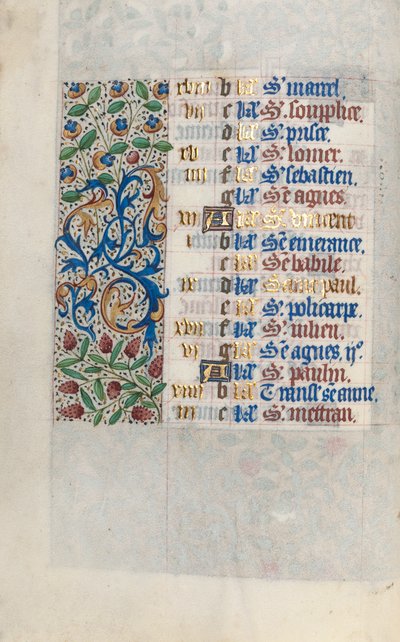 xviii b kl St marcel.
vii c kl St souplice.
d kl St prisce.
xv e kl St lomer.
iiii f kl St sebastien.
g kl Ste agnes.
xii A kl St vincent
i b kl Ste emerance.
c kl Ste babile.
ix d kl Saint paul.
e kl St policarpe.
xvii f kl St iulien.
vi g kl Ste agnes. ijo
A kl St paulin.
xiiii b kl Transl ste anne.
iii c kl St mettran.